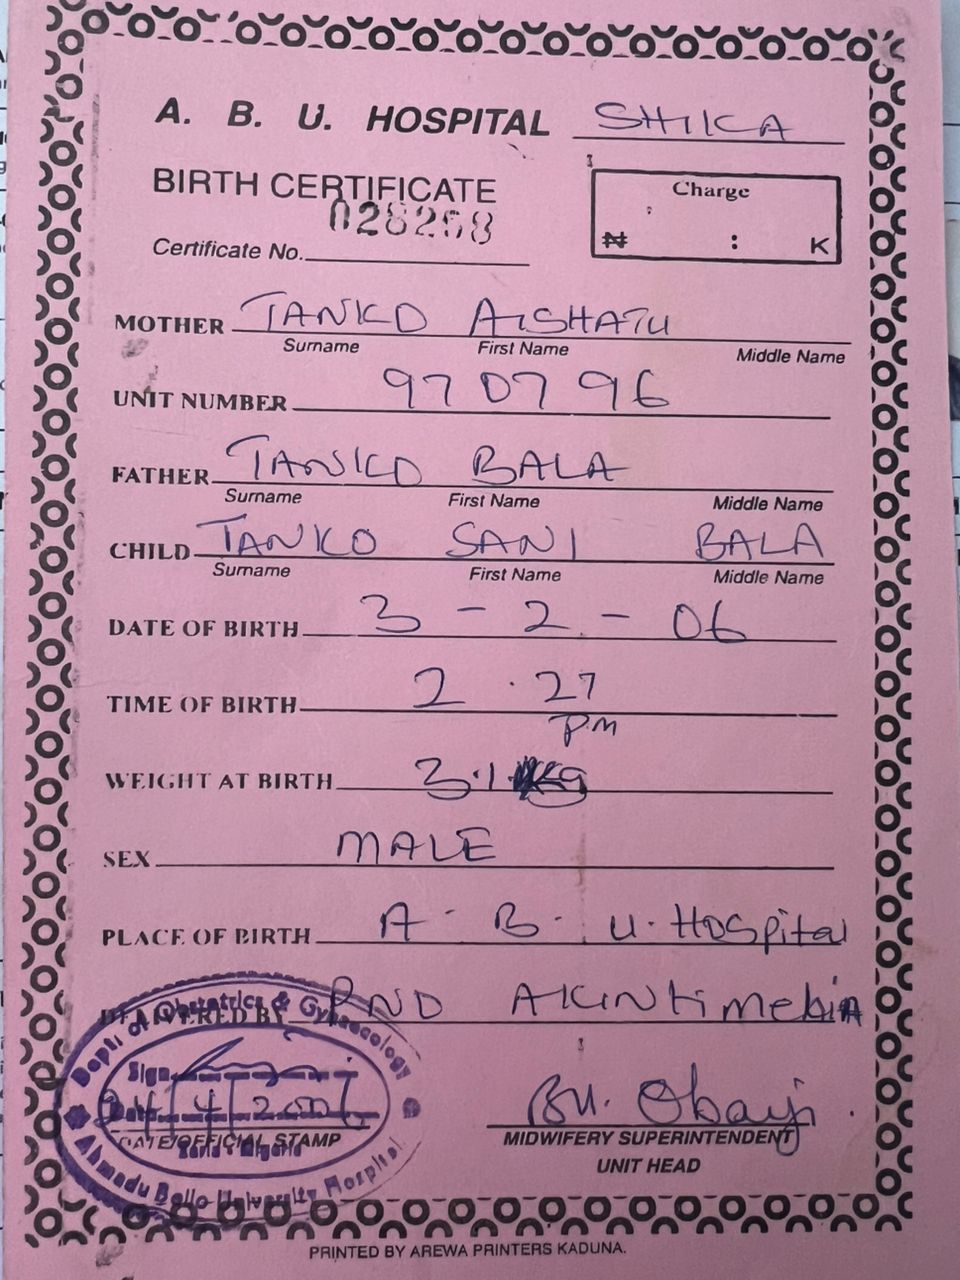 A. B. U. HOSPITAL SHIKA
BIRTH CERTIFICATE
028268
Certificate No.
Charge
₦ : K
MOTHER TANKO AISHATU
Surname First Name Middle Name
UNIT NUMBER 970796
FATHER TANKO BALA
Surname First Name Middle Name
CHILD TANKO SANI BALA
Surname First Name Middle Name
DATE OF BIRTH 3 - 2 - 06
TIME OF BIRTH 2.27
pm
WEIGHT AT BIRTH 3.1 kg
SEX MALE
PLACE OF BIRTH A. B. U. Hospital
DELIVERED BY PND
Dept. of Obstetrics & Gynaecology
Sign
Date 24/4/2006
DATE/OFFICIAL STAMP
Zaria - Nigeria
Ahmadu Bello University Hospital
MIDWIFERY SUPERINTENDENT
UNIT HEAD
PRINTED BY AREWA PRINTERS KADUNA.